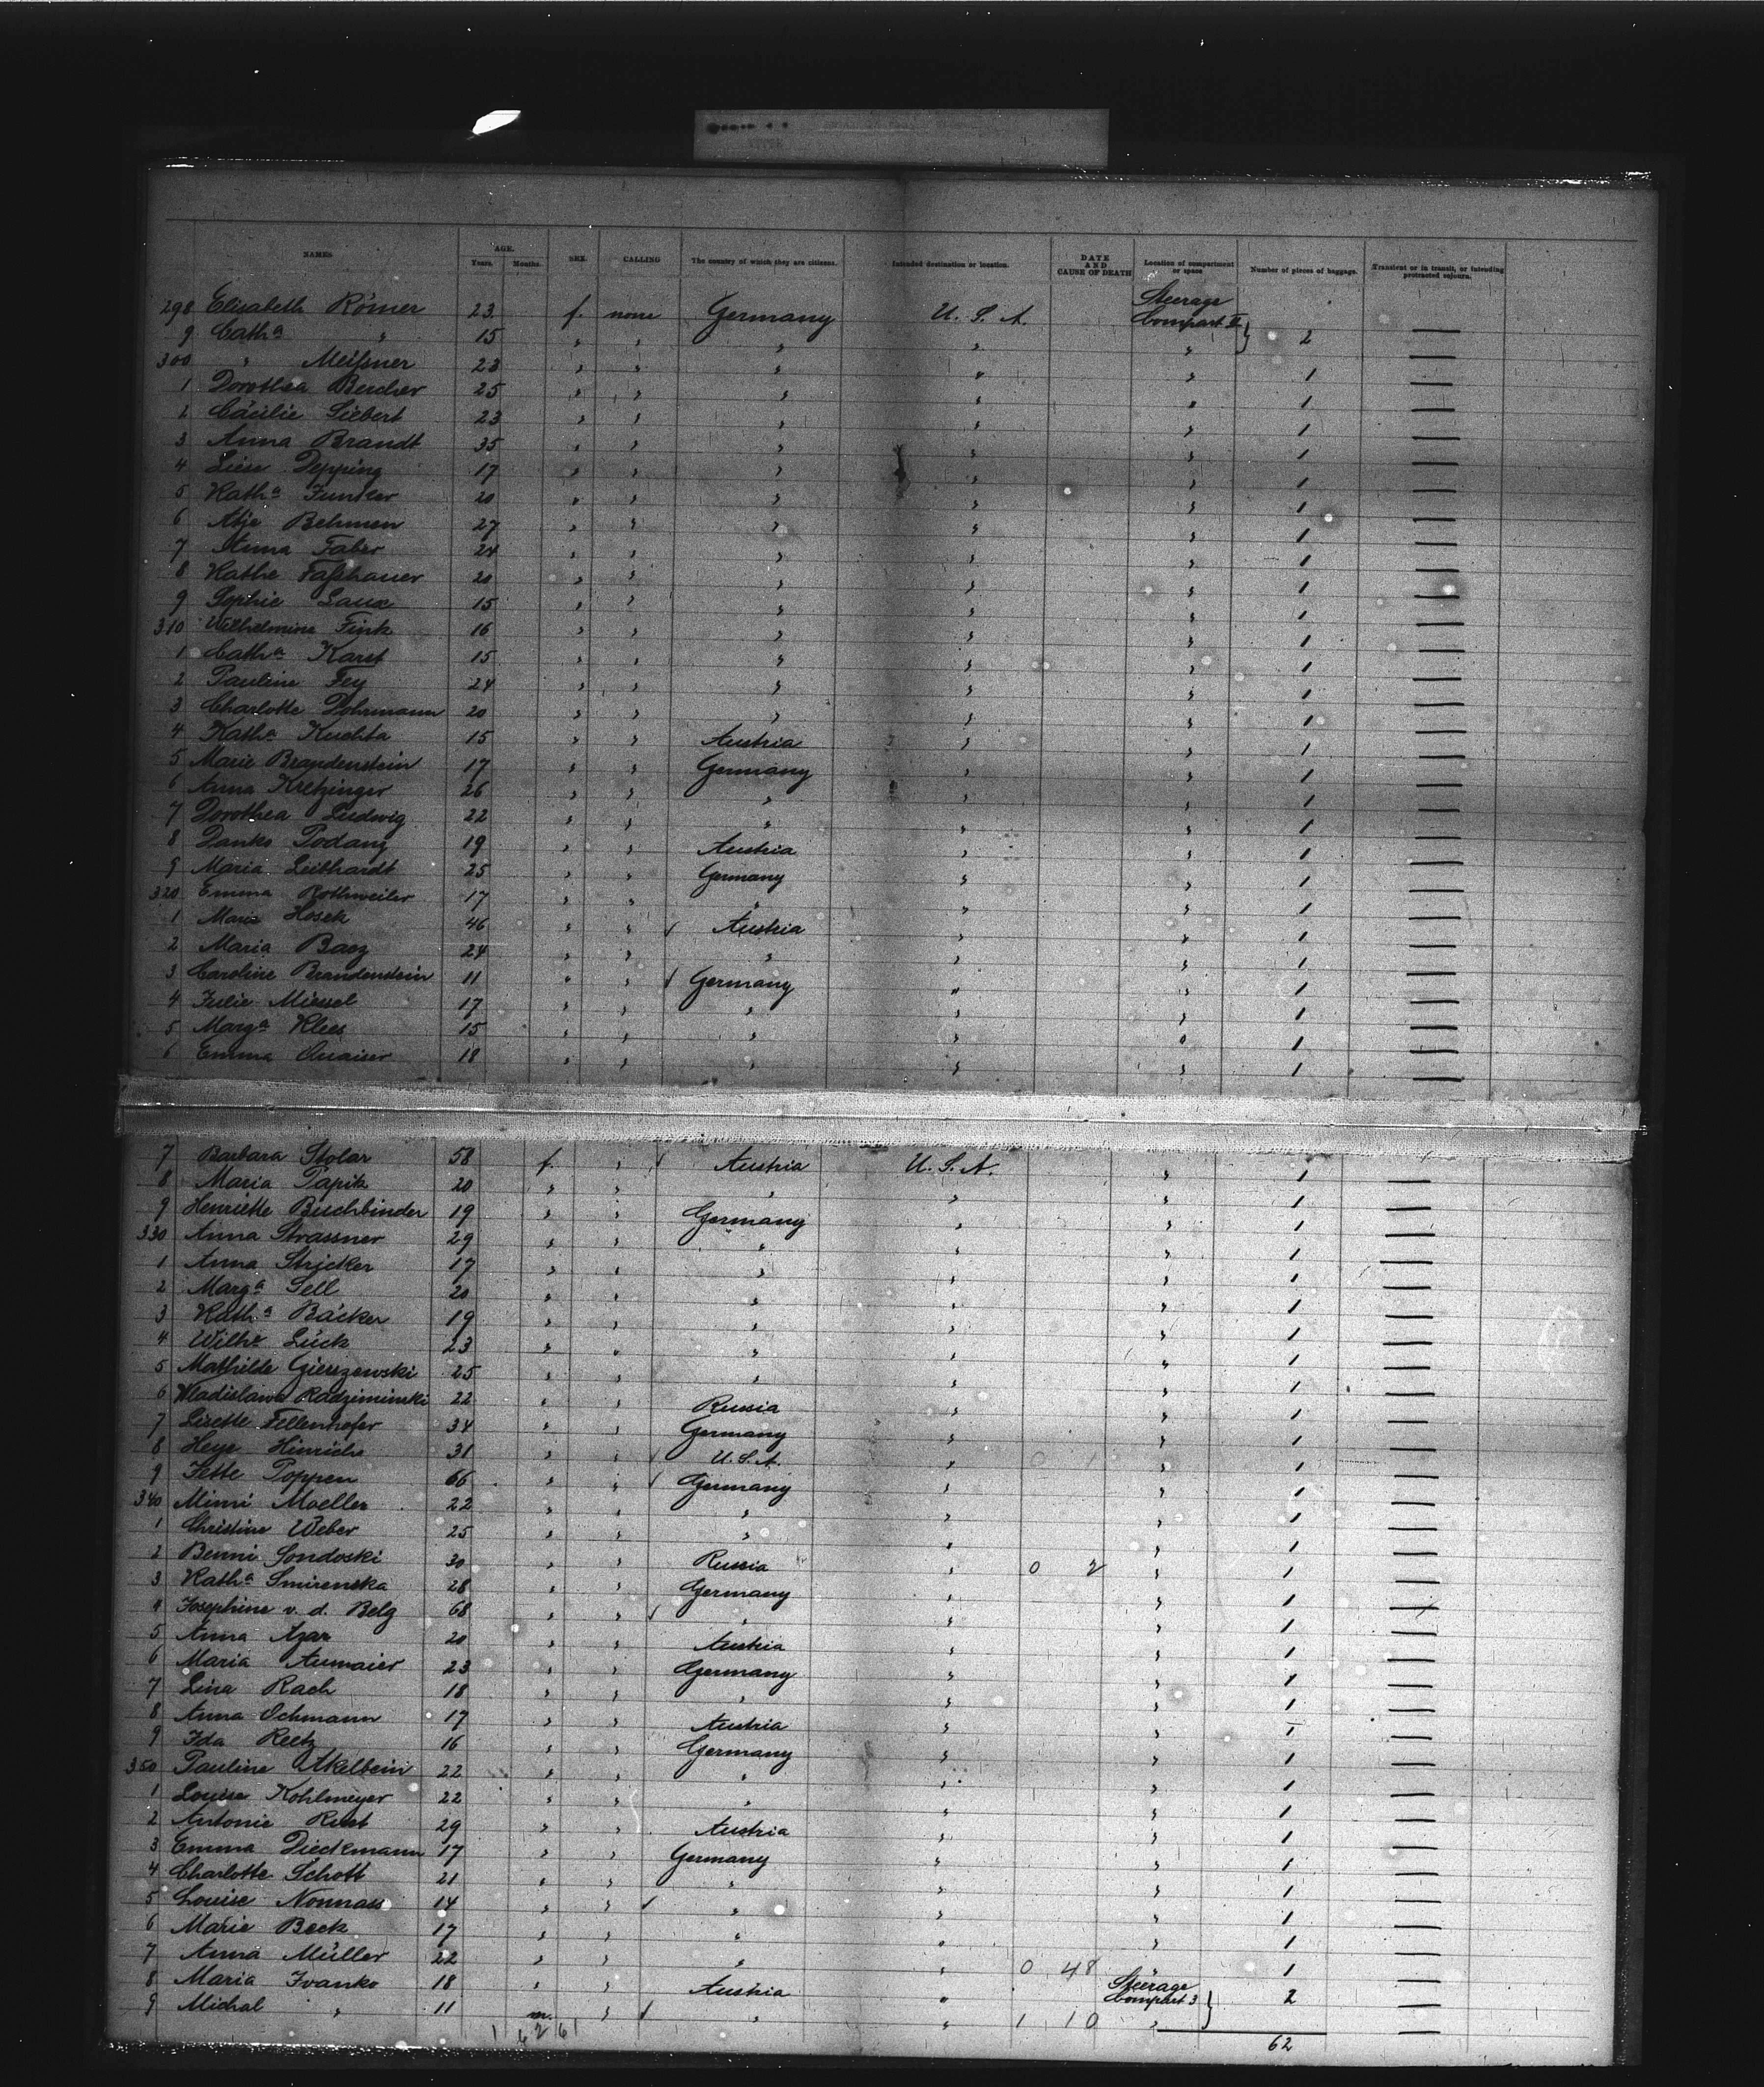 NAMES AGE. Years. Months. SEX. CALLING The country of which they are citizens. Intended destination or location. DATE AND CAUSE OF DEATH Location of compartment or space Number of pieces of baggage. Transient or in transit, or intending protracted sojourn.
298 Elisabeth Römer 23 f. none Germany U. S. A. Steerage Compart II
9 Cath a " 15 " " " " " } 2 —
300 " Meißner 23 " " " " " 1 —
1 Dorothea Bercher 25 " " " " " 1 —
2 Cäcilie Siebert 23 " " " " " 1 —
3 Anna Brandt 35 " " " " " 1 —
4 Liese Depping 17 " " " " " 1 —
5 Kath a Funker 20 " " " " " 1 —
6 Atje Behmen 27 " " " " " 1 —
7 Anna Faber 24 " " " " " 1 —
8 Kathe Faßhauer 20 " " " " " 1 —
9 Sophie Laux 15 " " " " " 1 —
310 Wilhelmine Fink 16 " " " " " 1 —
1 Cath a Karst 15 " " " " " 1 —
2 Pauline Fey 24 " " " " " 1 —
3 Charlotte Pohrmann 20 " " " " " 1 —
4 Kath a Kuchta 15 " " Austria " " 1 —
5 Marie Brandenstein 17 " " Germany " " 1 —
6 Anna Kretzinger 26 " " " " " 1 —
7 Dorothea Ludwig 22 " " " " " 1 —
8 Danko Podany 19 " " Austria " " 1 —
9 Maria Leibhardt 25 " " Germany " " 1 —
320 Emma Rothweiler 17 " " " " " 1 —
1 Marie Hosek 46 " " ✓ Austria " " 1 —
2 Maria Bacz 24 " " " " " 1 —
3 Caroline Brandenstein 11 " " ✓ Germany " " 1 —
4 Julie Miessel 17 " " " " " 1 —
5 Marg a Klees 15 " " " " " 1 —
6 Emma Quaiser 18 " " " " " 1 —
7 Barbara Stolar 58 f. " ✓ Austria U. S. A. " 1 —
8 Maria Papik 20 " " " " " 1 —
9 Henriette Buchbinder 19 " " Germany " " 1 —
330 Anna Strassner 29 " " " " " 1 —
1 Anna Stricker 17 " " " " " 1 —
2 Marg a Sell 20 " " " " " 1 —
3 Kath a Bäcker 19 " " " " " 1 —
4 Wilh e Lück 23 " " " " " 1 —
5 Mathilde Gierszewski 25 " " " " " 1 —
6 Wladislawa Radziminski 22 " " Russia " " 1 —
7 Lisette Fellenhofer 34 " " Germany " " 1 —
8 Heye Hinrichs 31 " " ✓ U. S. A. " 0 1 " 1 —
9 Jette Poppen 66 " " ✓ Germany " " 1 —
340 Mimi Moeller 22 " " " " " 1 —
1 Christine Weber 25 " " " " " 1 —
2 Benni Sondoski 30 " " Russia " 0 2 " 1 —
3 Kath a Smirenska 28 " " Germany " " 1 —
4 Josephine v. d. Belg 68 " " ✓ " " " 1 —
5 Anna Azar 20 " " Austria " " 1 —
6 Maria Aumaier 23 " " Germany " " 1 —
7 Lina Rach 18 " " " " " 1 —
8 Anna Ochmann 17 " " Austria " " 1 —
9 Ida Reetz 16 " " Germany " " 1 —
350 Pauline Akelbein 22 " " " " " 1 —
1 Louise Kohlmeyer 22 " " " " " 1 —
2 Antonie Rust 29 " " Austria " " 1 —
3 Emma Dieckmann 17 " " Germany " " 1 —
4 Charlotte Schott 21 " " " " " 1 —
5 Louise Nonnass 14 " " ✓ " " " 1 —
6 Marie Beck 17 " " " " " 1 —
7 Anna Müller 22 " " " " 0 48 " 1 —
8 Maria Ivanko 18 " " Austria " Steerage Compart 3 } 2 —
9 Michal " 11 m. " ✓ " " 1 10 " —
1 62 61 62